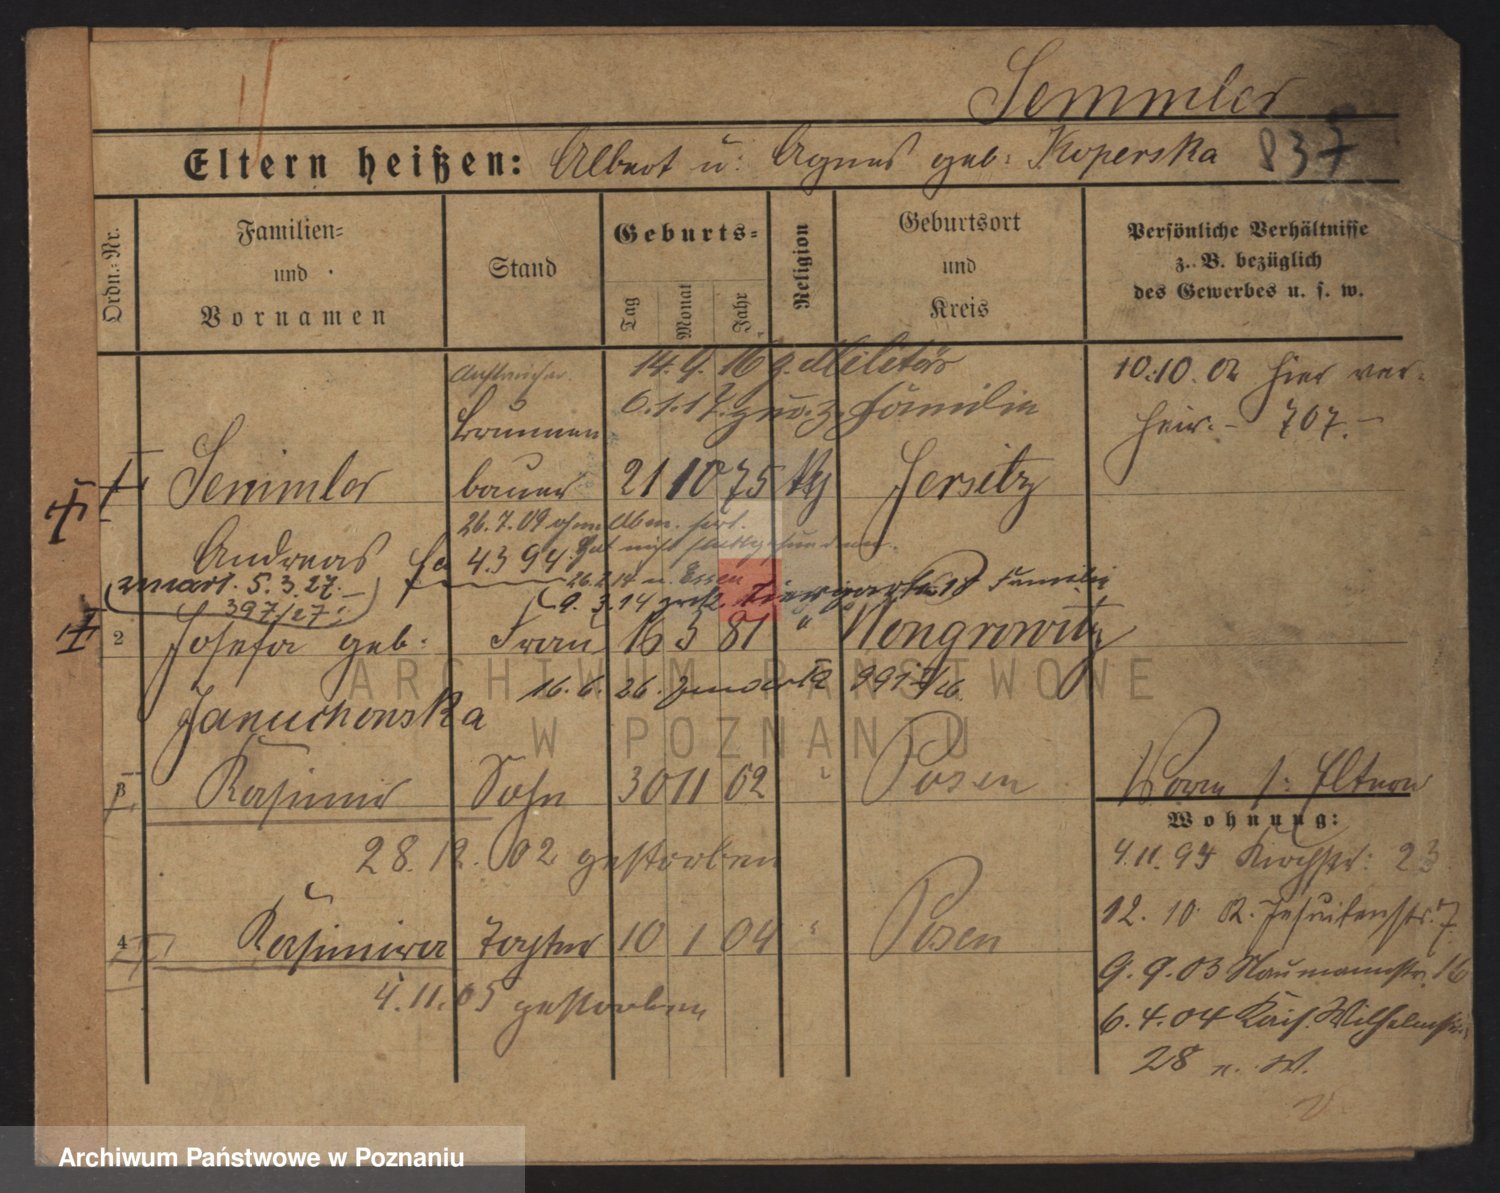 Semmler
Eltern heißen: Albert u: Agnes geb: Koperska 837
Ordn.-Nr.
Familien-
und
Vornamen
Stand
Geburts-
Tag
Monat
Jahr
Religion
Geburtsort
und
Kreis
Persönliche Verhältnisse
z. B. bezüglich
des Gewerbes u. s. w.
14. 9. 16 z. Militär
6.1.17. zur. z. Familie
10.10.02 hier ver-
heir. - 707.-
Brunnen
1 Semmler bauer 21 10 75 Jersitz
Andreas
26.7.09 ohne Abm. fort.
hat nicht stattgefunden.
4394
26.2.14 n. Essen
9. 3. 14 zrk. Tiergarten 18 Familie
5.3.27.
397/27
2 Josefa geb: Frau 16 3 81 " Wongrowitz
Januchowska
16. 6. 26.
3 Kasimir Sohn 30 11 02 " Posen
28. 12. 02 gestorben
4 Kasimira Tochter 10 1 04 " Posen
4.11.05 gestorben
Wohnung:
4.11.94 Kirchstr: 23
12. 10. 02. Jesuitenstr. 7.
9. 9. 03 Naumannstr. 16
6. 4. 04 Kais. Wilhelmstr.
28 n. W.
ARCHIWUM PAŃSTWOWE
W POZNANIU
Archiwum Państwowe w Poznaniu